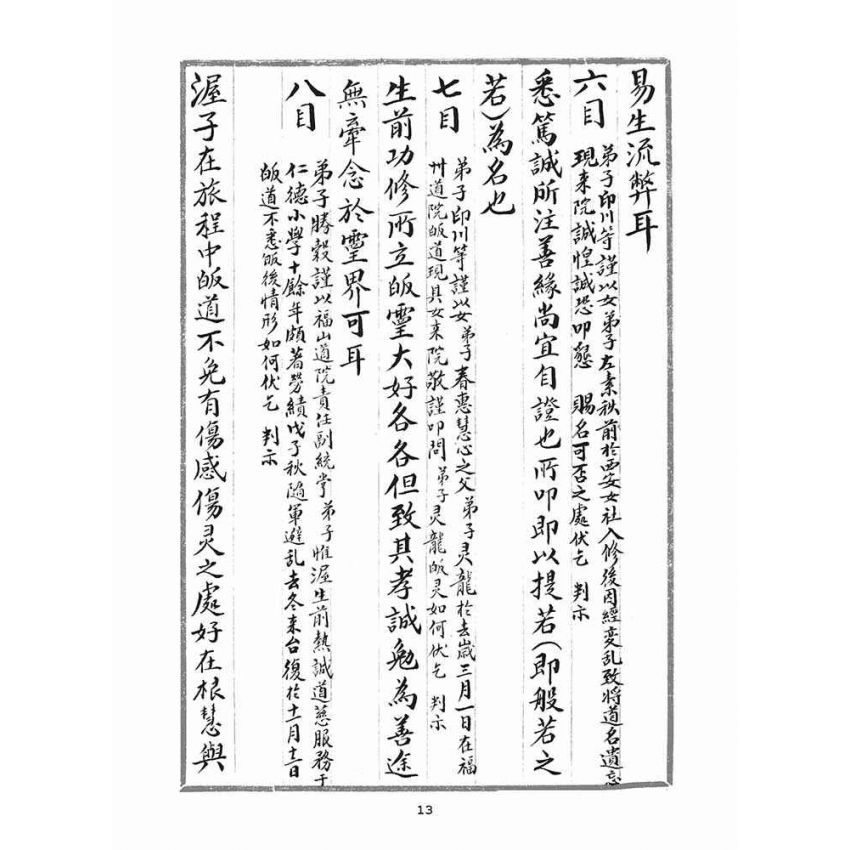 易生流弊耳
六目
弟子印川等謹以女弟子左素秩前於西安女社入修後因經变乱致將道名遺忘
現来院誠惶誠恐叩懇 賜名可否之處伏乞 判示
悉篤誠所注善緣尚宜自證也所叩即以提若(即般若之
若)為名也
七目
弟子印川等謹以女弟子春惠慧心之父弟子灵龍於去歲三月一日在福
州道院皈道現具女来院敬謹叩問弟子灵龍皈灵如何伏乞 判示
生前功修所立皈靈大好各各但致其孝誠勉為善途
無牽念於靈界可耳
八目
弟子勝穀謹以福山道院責任副統掌弟子惟渥生前熱誠道慈服務于
仁德小學十餘年頗著勞績戊子秋隨軍避乱去冬来台復於十一月十三日
皈道不悉皈後情形如何伏乞 判示
渥子在旅程中皈道不免有傷感傷灵之處好在根慧與
13